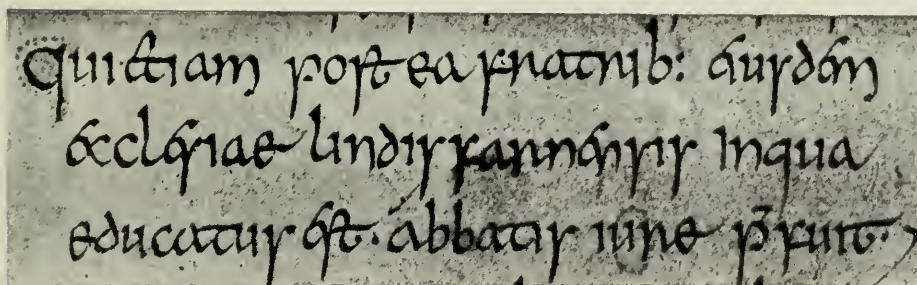 Qui etiam postea fratrib: eiusdem
ecclesiae lindisfarnensis inqua
educatus est · abbatis iure p̄fuit ·